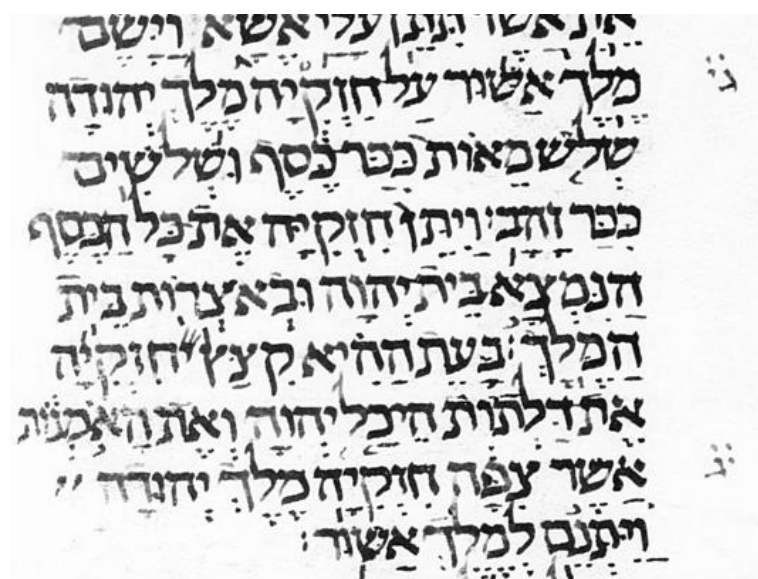 אֵת אֲשֶׁר תִּתֵּן עָלַי אֶשָּׂא וַיָּשֶׂם
מֶלֶךְ אַשּׁוּר עַל חִזְקִיָּה מֶלֶךְ יְהוּדָה
שְׁלֹשׁ מֵאוֹת כִּכַּר כֶּסֶף וּשְׁלֹשִׁים
כִּכַּר זָהָב׃ וַיִּתֵּן חִזְקִיָּה אֶת־כָּל הַכֶּסֶף
הַנִּמְצָא בֵית יְהוָה וּבְאֹצְרוֹת בֵּית
הַמֶּלֶךְ׃ בָּעֵת הַהִיא קִצַּץ חִזְקִיָּה
אֶת דַּלְתוֹת הֵיכַל יְהוָה וְאֶת הָאֹמְנוֹת
אֲשֶׁר צִפָּה חִזְקִיָּה מֶלֶךְ יְהוּדָה
וַיִּתְּנֵם לְמֶלֶךְ אַשּׁוּר׃